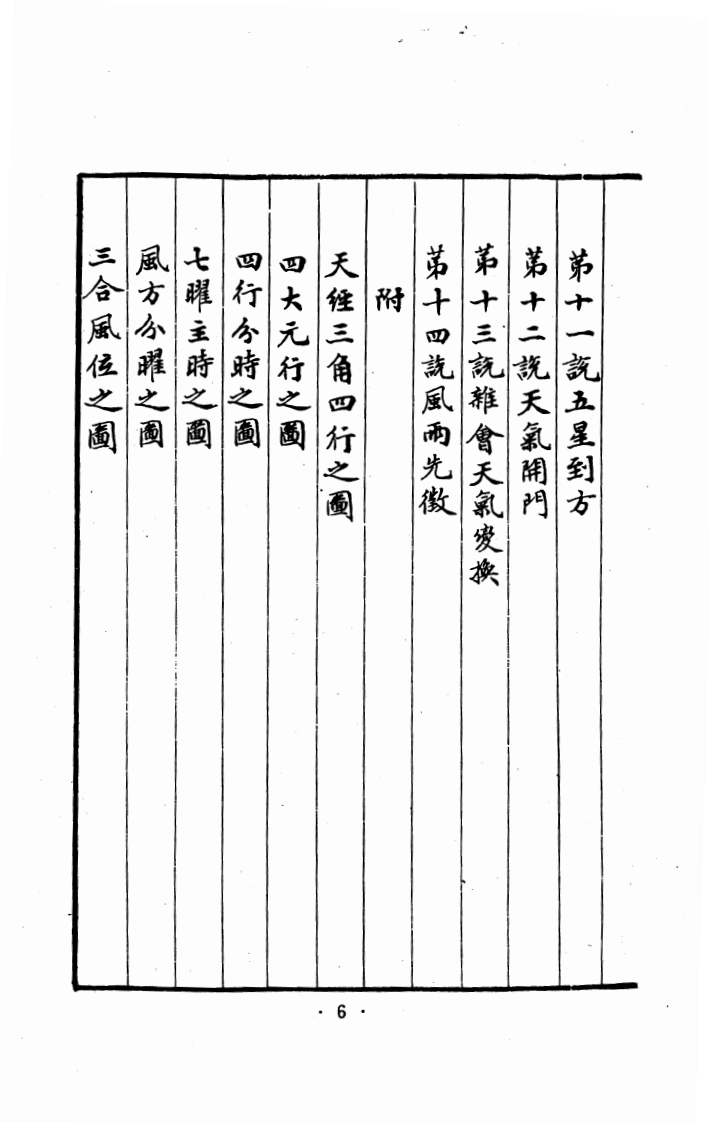 第十一說五星到方
第十二說天氣開門
第十三說雜會天氣變換
第十四說風雨先徵
附
天經三角四行之圖
四大元行之圖
四行分時之圖
七曜主時之圖
風方分曜之圖
三合風位之圖
· 6 ·